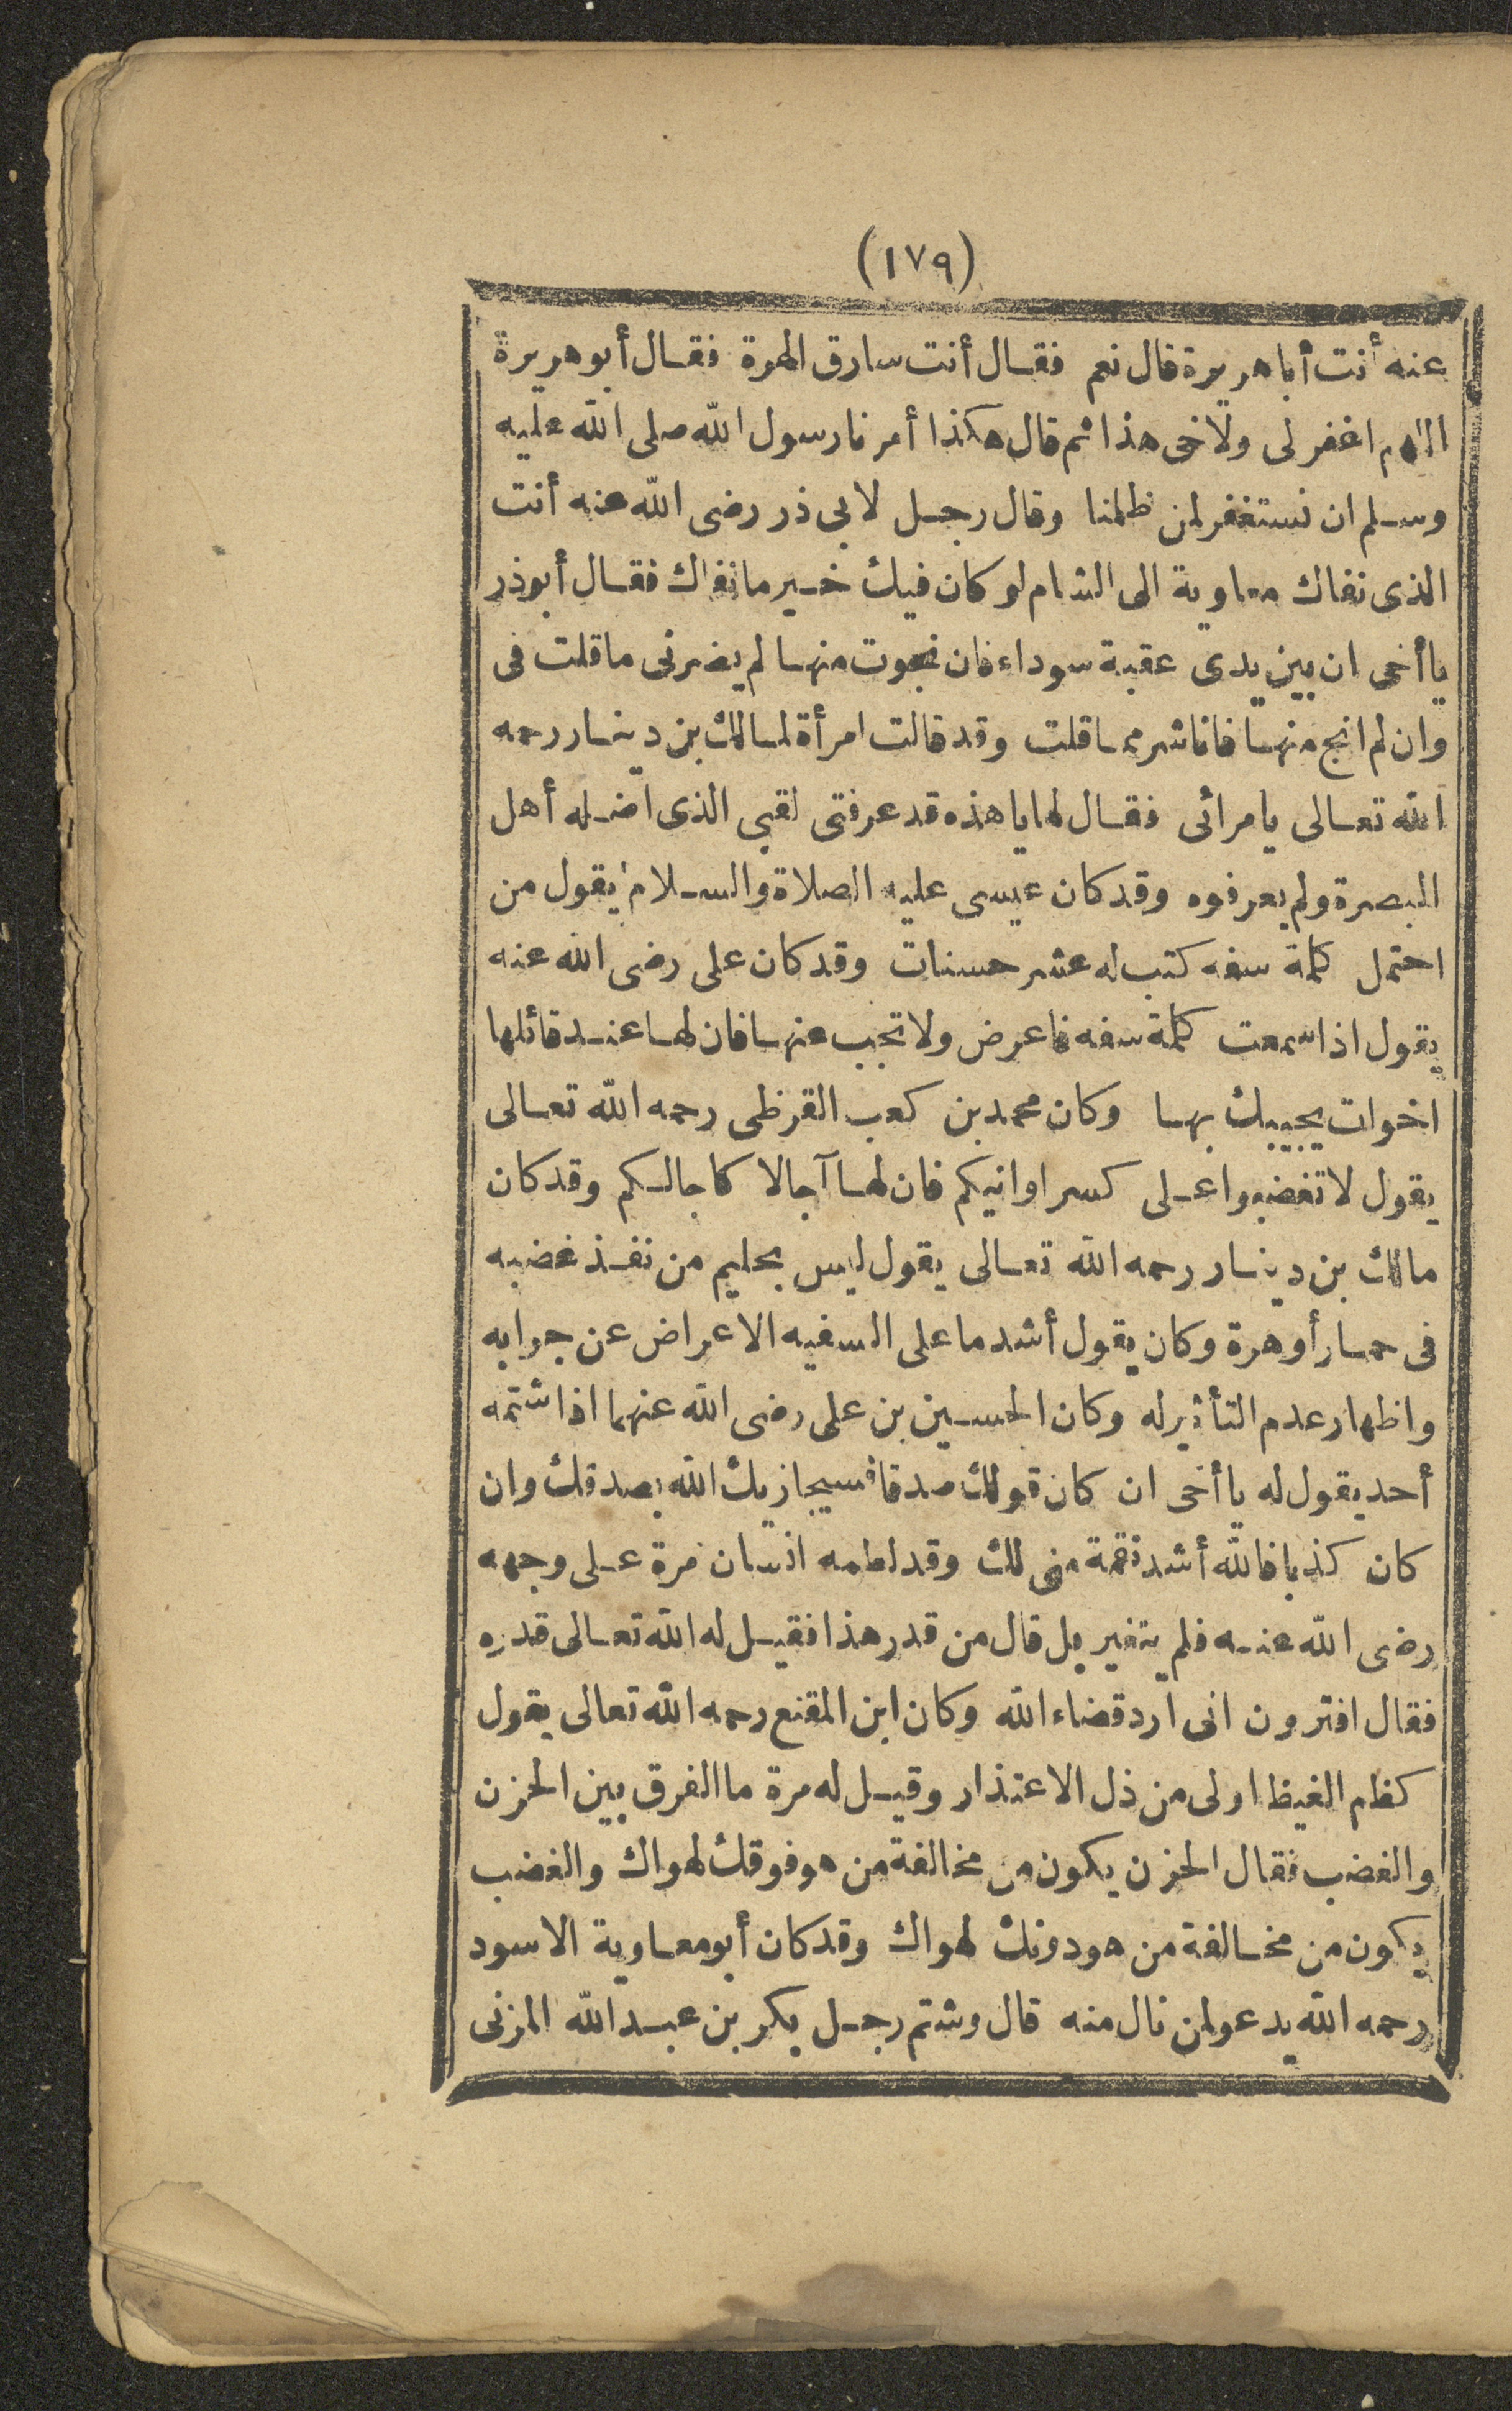 (١٧٩)
عنه أنت أباهريرة قال نعم فقال أنت سارق الهرة فقال أبو هريرة
اللهم اغفر لى ولاخى هذا ثم قال هكذا أمرنا رسول الله صلى الله عليه
وسلم ان نستغفر لمن ظلمنا وقال رجل لابى ذر رضى الله عنه أنت
الذى نفاك معاوية الى الشام لو كان فيك خير ما نفاك فقال أبو ذر
يا أخى ان بين يدى عقبة سوداء فان نجوت منها لم يضرنى ما قلت فى
وان لم انج منها فانا شر مما قلت وقد قالت امرأة لمالك بن دينار رحمه
الله تعالى يا مرائى فقال لها يا هذه قد عرفتى لقبى الذى اضله أهل
البصرة ولم يعرفوه وقد كان عيسى عليه الصلاة والسلام يقول من
احتمل كلمة سفه كتب له عشر حسنات وقد كان على رضى الله عنه
يقول اذا سمعت كلمة سفه فاعرض ولا تجب عنها فان لها عند قائلها
اخوات يجيبك بها وكان محمد بن كعب القرظى رحمه الله تعالى
يقول لا تغضبوا على كسر اوانيكم فان لها آجالا كاجالكم وقد كان
مالك بن دينار رحمه الله تعالى يقول ليس بحليم من نفذ غضبه
فى حمار أو هرة وكان يقول أشد ما على السفيه الاعراض عن جوابه
واظهار عدم التأثير له وكان الحسين بن على رضى الله عنهما اذا شتمه
أحد يقول له يا أخى ان كان قولك صدقا فسيجازيك الله بصدقك وان
كان كذبا فالله أشد نقمة منى لك وقد لطمه انسان مرة على وجهه
رضى الله عنه فلم يتغير بل قال من قدر هذا فقيل له الله تعالى قدره
فقال افترون انى ارد قضاء الله وكان ابن المقنع رحمه الله تعالى يقول
كظم الغيظ اولى من ذل الاعتذار وقيل له مرة ما الفرق بين الحزن
والغضب فقال الحزن يكون من مخالفة من هو فوقك لهواك والغضب
يكون من مخالفة من هو دونك لهواك وقد كان أبو معاوية الاسود
رحمه الله يدعو لمن نال منه قال وشتم رجل بكر بن عبد الله المزنى